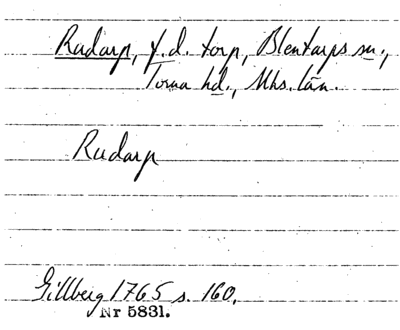 Rudarp, f.d. torp, Blentarps sn.,
Torna hd., Mhs. län.
Rudarp
Gillberg 1765 s. 160.
Nr 5831.